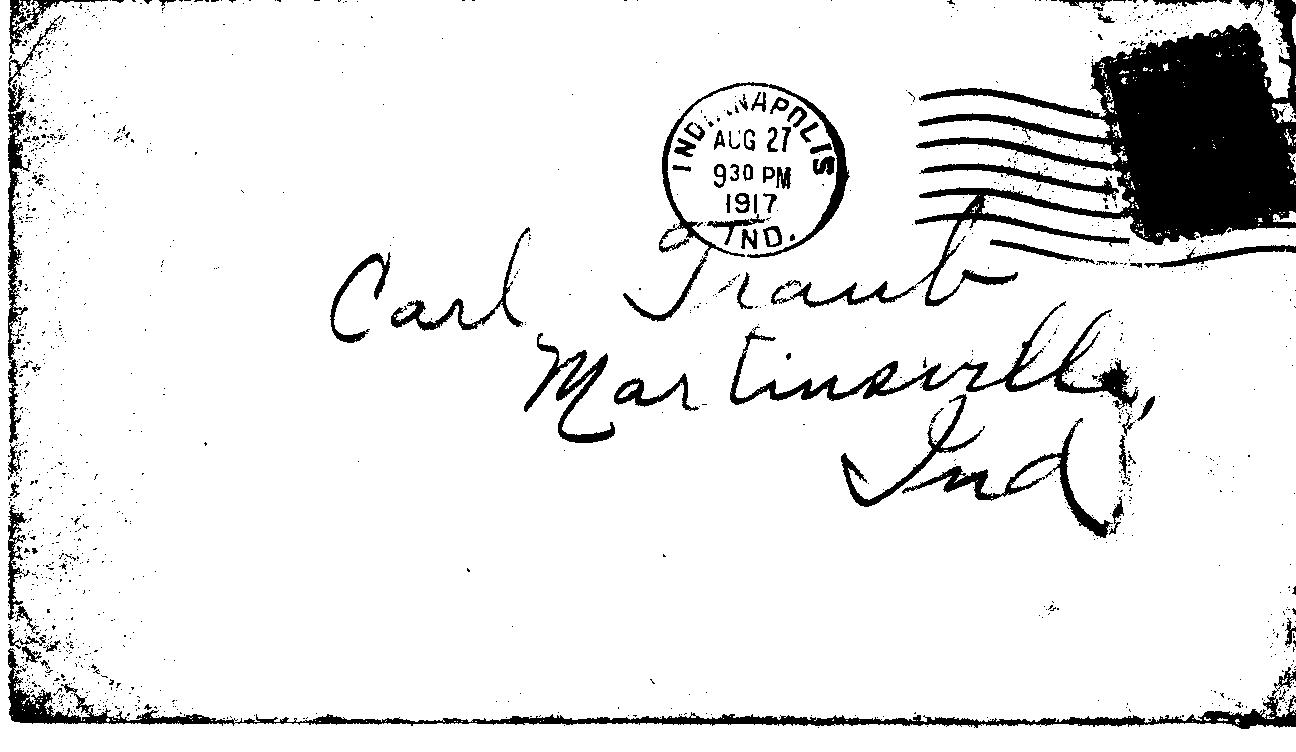 INDIANAPOLIS
AUG 27
930 PM
1917
IND.
Carl Traub
Martinsville,
Ind